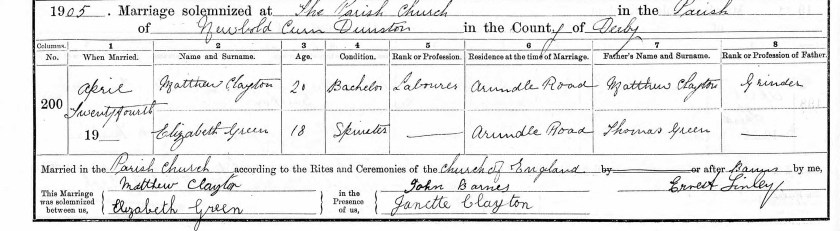 1905. Marriage solemnized at The Parish Church in the Parish
of Newbold Cum Dunston in the County of Derby
Columns. 1 2 3 4 5 6 7 8
No. When Married. Name and Surname. Age. Condition. Rank or Profession. Residence at the time of Marriage. Father's Name and Surname. Rank or Profession of Father.
200
April Matthew Clayton 20 Bachelor Labourer Arundle Road Matthew Clayton Grinder
Twentyfourth
19 Elizabeth Green 18 Spinster Arundle Road Thomas Green
Married in the Parish Church according to the Rites and Ceremonies of the Church of England by or after Banns by me,
This Marriage was solemnized between us, Matthew Clayton in the Presence of us, John Barnes Ernest Linley
Elizabeth Green Janette Clayton